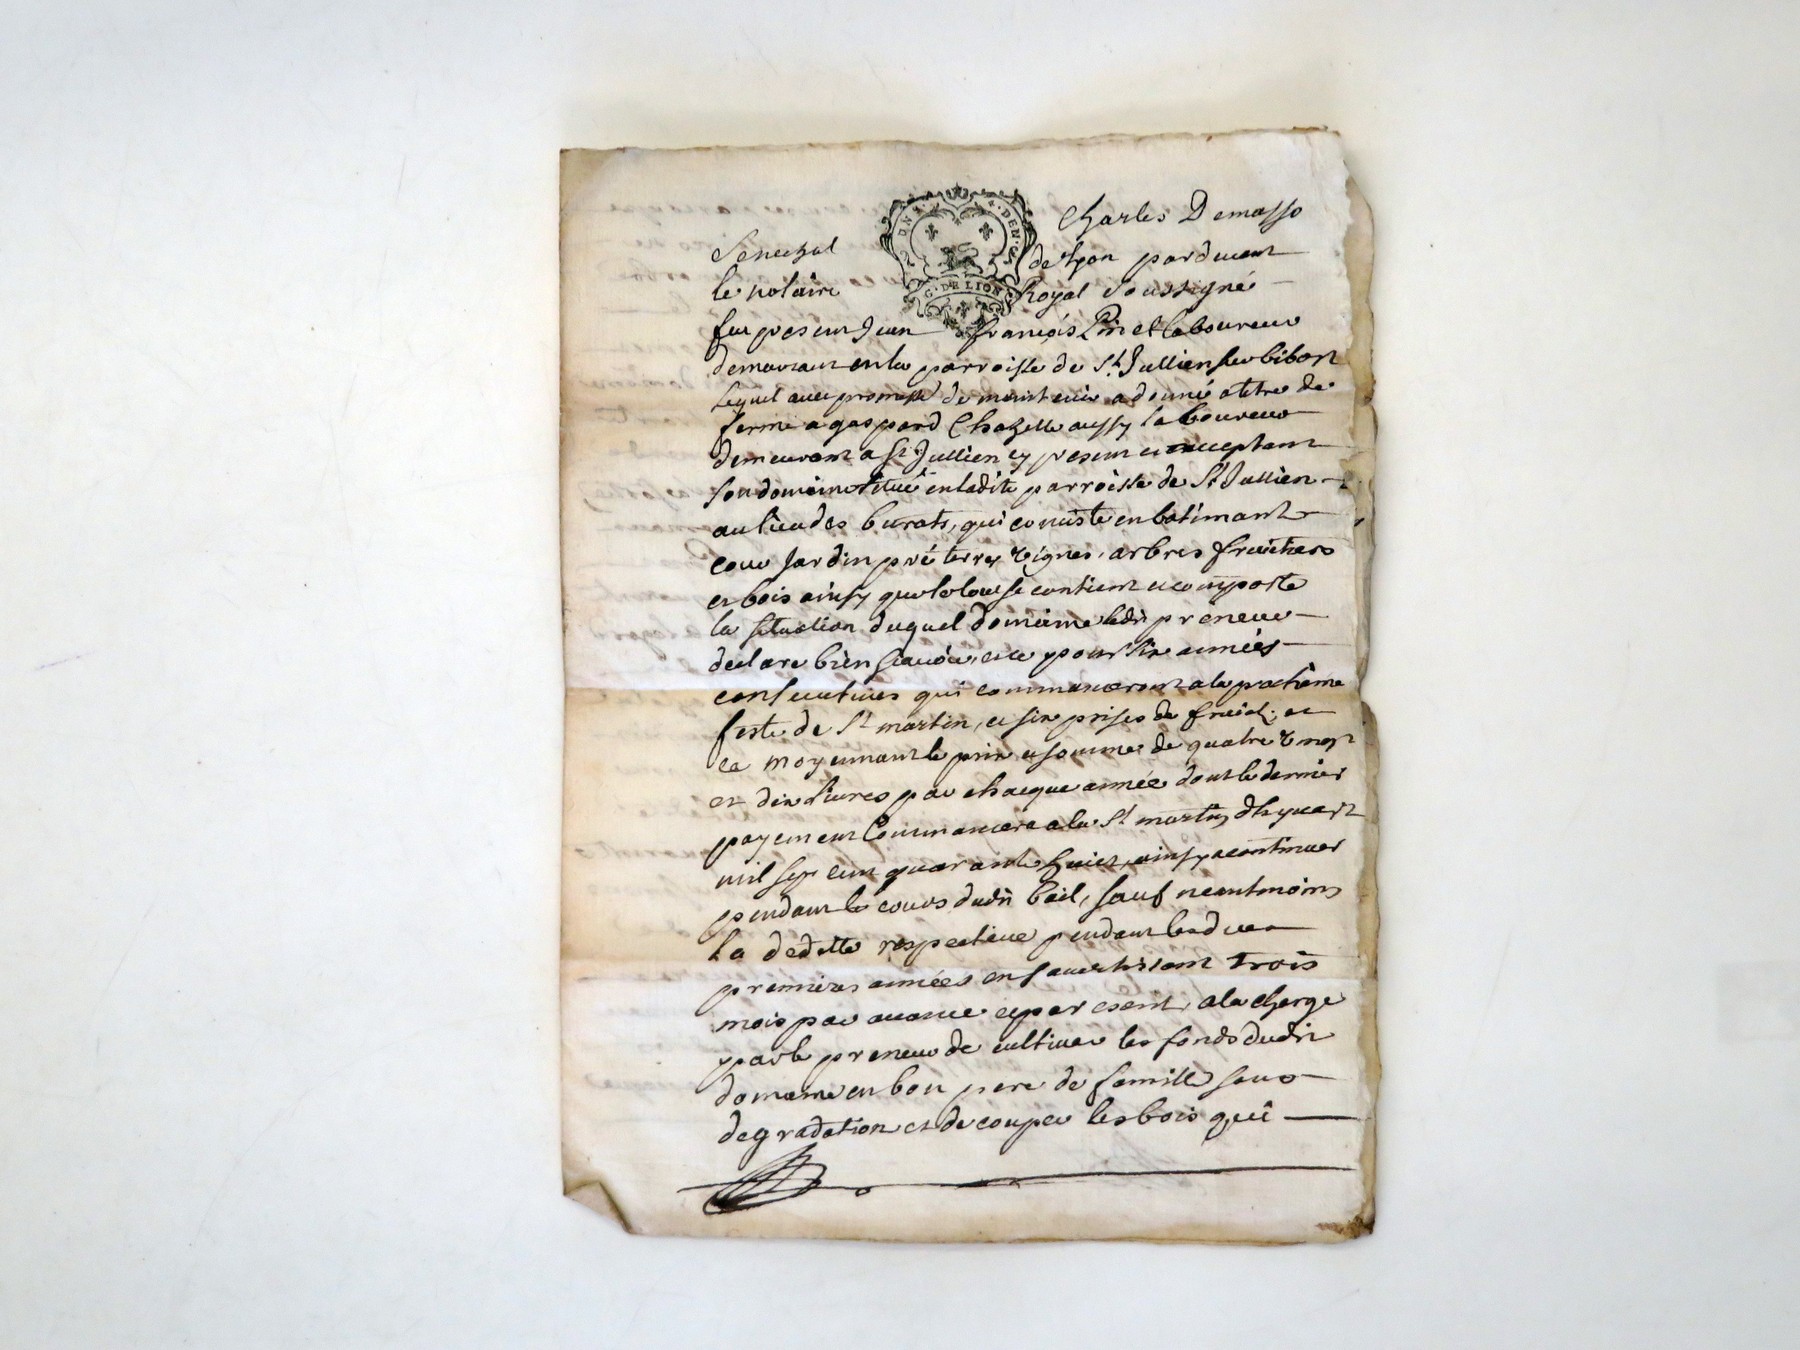 Charles Demasso
Senechal de Lyon pardevant
2 DNS. 4. DEN. G. DE LION
le notaire Royal soussigné
fut present Jean françois laboureur
demeurant en la parroisse de St. Jullien sur bibost
lequel avec promesse de maintenir a donné a titre de
ferme a gaspard Chazelle aussy laboureur
demeurant a St. Jullien cy present et acceptant
son domaine situé en ladite parroisse de St Jullien
au lieu des burats, qui consiste en batimant
cour Jardin pré terres vignes, arbres fruitiers
et bois ainsy que le tout se contient et comporte
la situation duquel domaine ledit preneur
declare bien scavoir, et ce pour six années
consecutives qui commanceront a la prochaine
feste de St martin, et six prises de fruict, et
ce moyennant le prix et somme de quatre vingt
et dix livres par chacque année dont le dernier
payement Commancera a la St martin
mil sept cent quarante huict, ainsy a continuer
pendant le cours dudit bail, sauf neantmoins
la deditte respective pendant les deux
premieres années en savertissant trois
mois par avance et par escrit, a la charge
par le preneur de cultiver les fonds dudit
domaine en bon pere de famille sans
degradation et de couper les bois qui